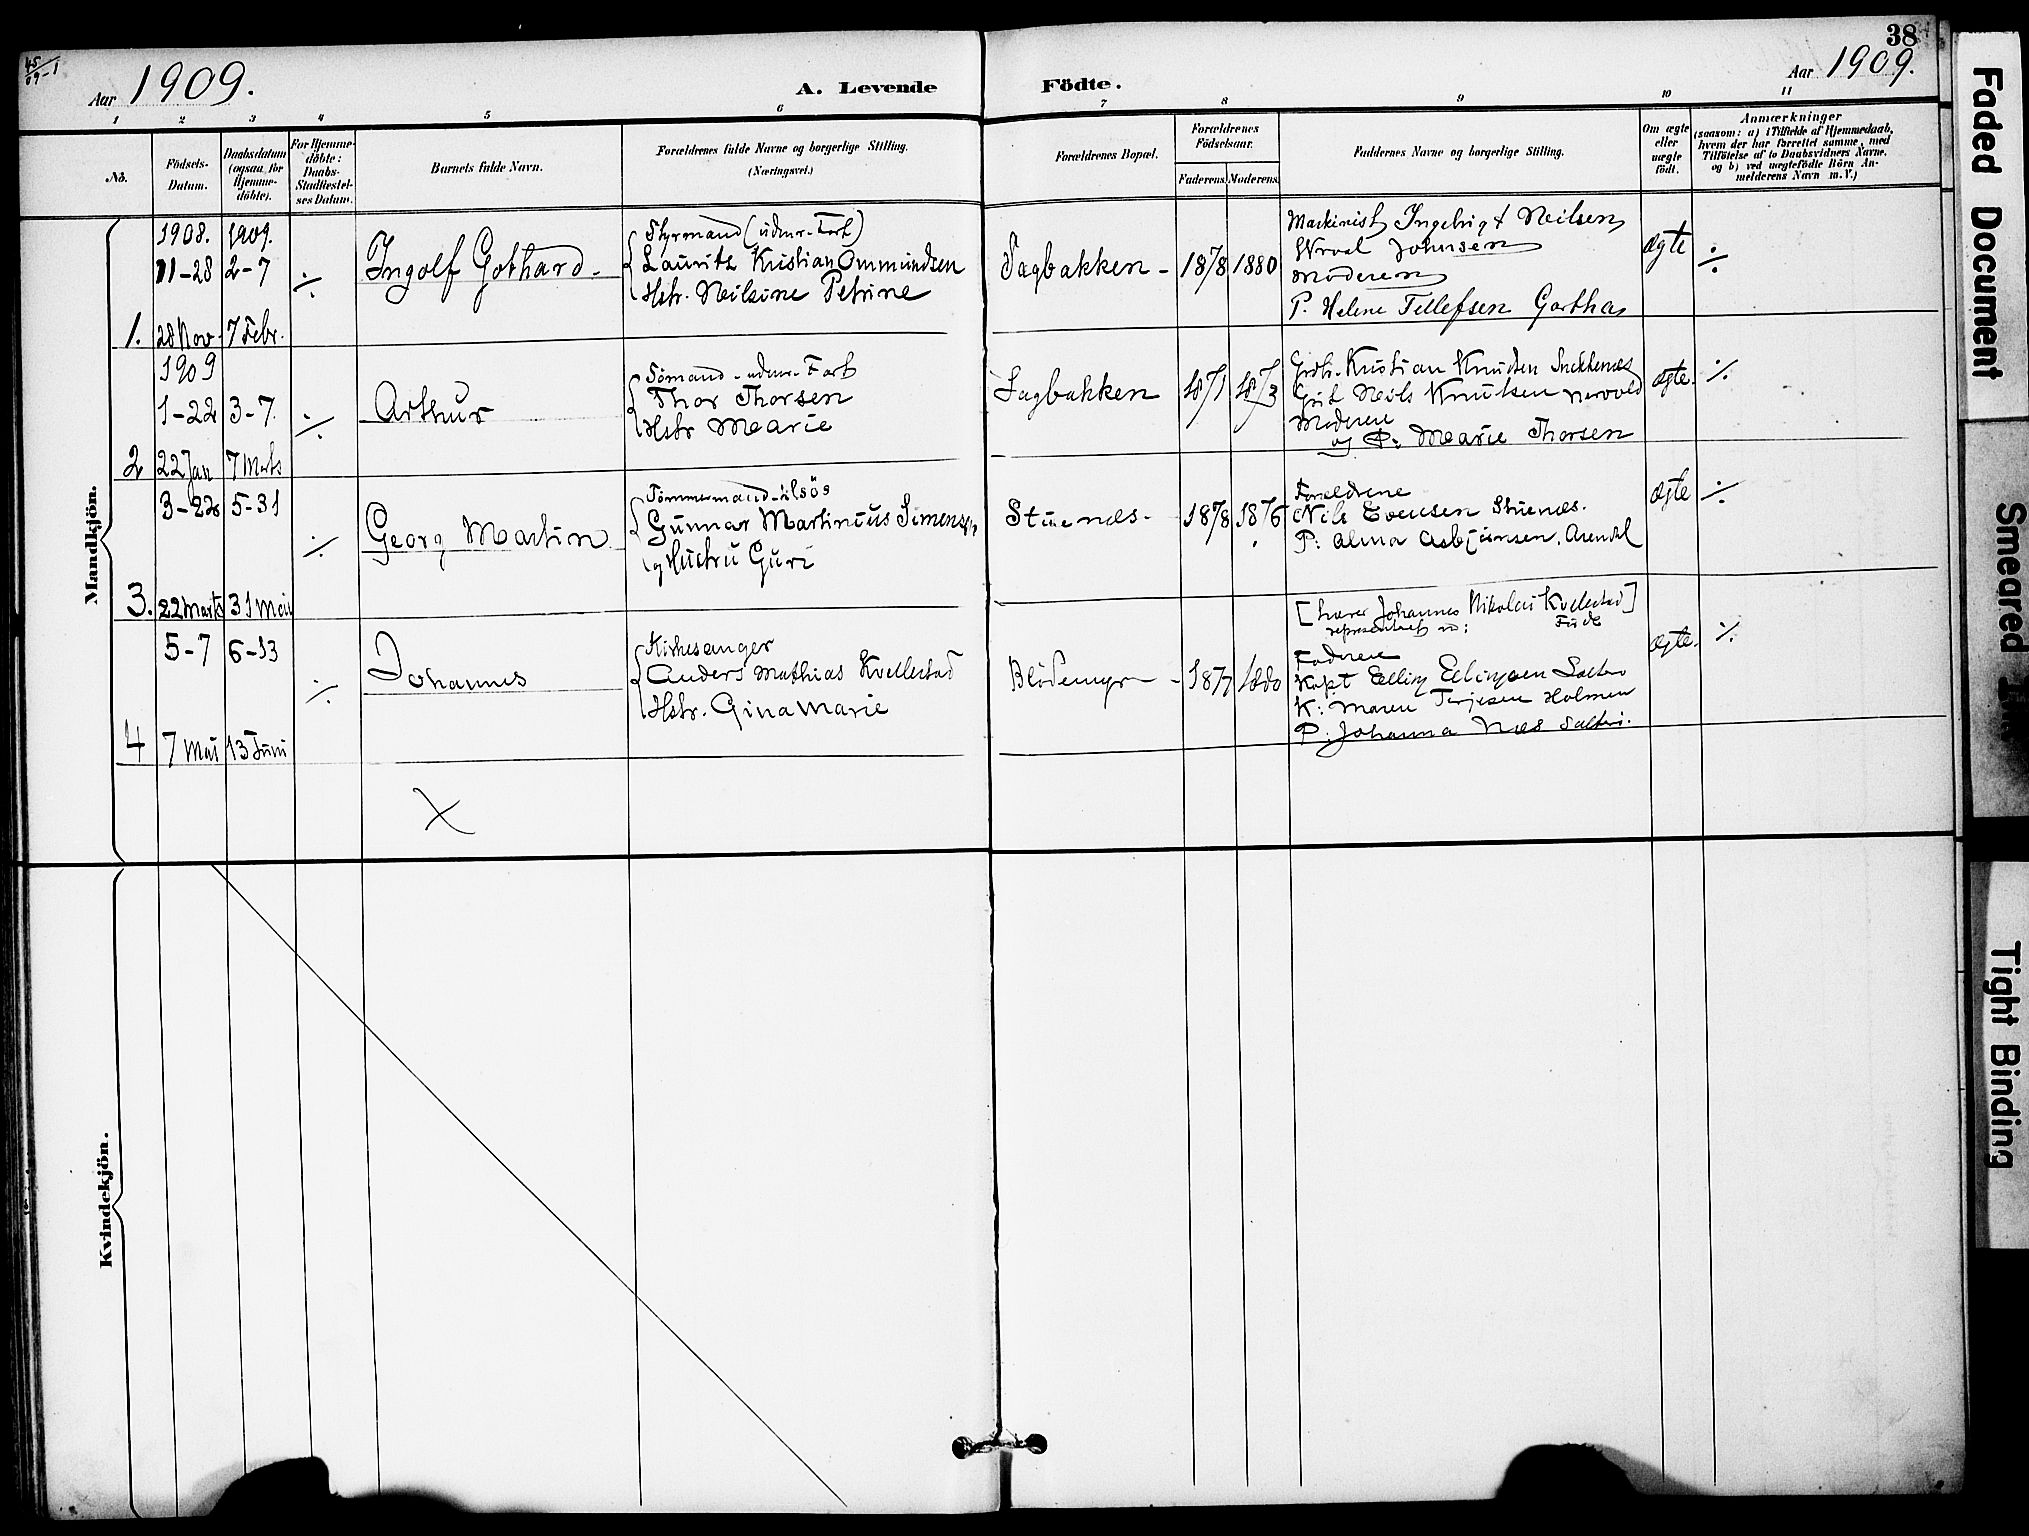 45/09-1
Aar 1909.
A. Levende Födte.
38
Aar 1909.
1 2 3 4 5 6 7 8 9 10 11
No.
Födsels-Datum.
Daabsdatum (ogsaa for Hjemmedöbte).
For Hjemmedöbte: Daabs-Stadfæstelses Datum.
Barnets fulde Navn.
Forældrenes fulde Navne og borgerlige Stilling. (Næringsvei.)
Forældrenes Bopæl.
Forældrenes Födselsaar.
Faderens. Moderens.
Faddernes Navne og borgerlige Stilling.
Om ægte eller uægte födt.
Anmærkninger
(saasom: a) i Tilfælde af Hjemmedaab, hvem der har forrettet samme, med Tilföielse af to Daabsvidners Navne. og b) ved uægtefödte Börn Anmelderens Navn m. V.)
Mandkjön.
1. 1908. 11-28 28 Nov. 1909. 2-7 7 Febr. ./.
Ingolf Gothard.
Styrmand (udenr. Fart)
Laurits Kristian Ommundsen
Hstr. Neilsine Petrine
Sagbakken - 1878 1880
Maskinist Ingebrigt Neilsen
Johnsen
Moderen
P. Helene Tellefsen Gartha
Ægte ./.
2 1909 1-22 22 Jan 3-7. 7 Marts ./.
Arthur
Sömand - udenr. Fart
Thor Thorsen
Hstr Marie
Sagbakken 1871 1873
Kristian Knudsen
Neils Knutsen
Moderen
og P. Marie Thorsen
Ægte. ./.
3. 3-22 22 Marts 5-31 31 Mai ./.
Georg Martin
Tömmermand
Gunnar Martinius Simensen
og Hustru Guri
Stuenæs - 1878 1876
Forældrene
Nils Evensen Stuenæs.
P: Alma Asbjörnsen, Arendal
Ægte ./.
4 5-7 7 Mai 6-13 13 Juni ./.
Johannes
Kirkesanger
Anders Mathias Kvellestad
Hstr. Gina Marie
Blödemyr - 1877 1880
[Lærer Johannes Nikolai Kvellestad]
Faderen
Kapt Elling Ellingsen
K: Maren Terjesen Holmen
P. Johanna Næs
Ægte. ./.
X
Kvindekjön.
Faded Document
Smeared
Tight Binding